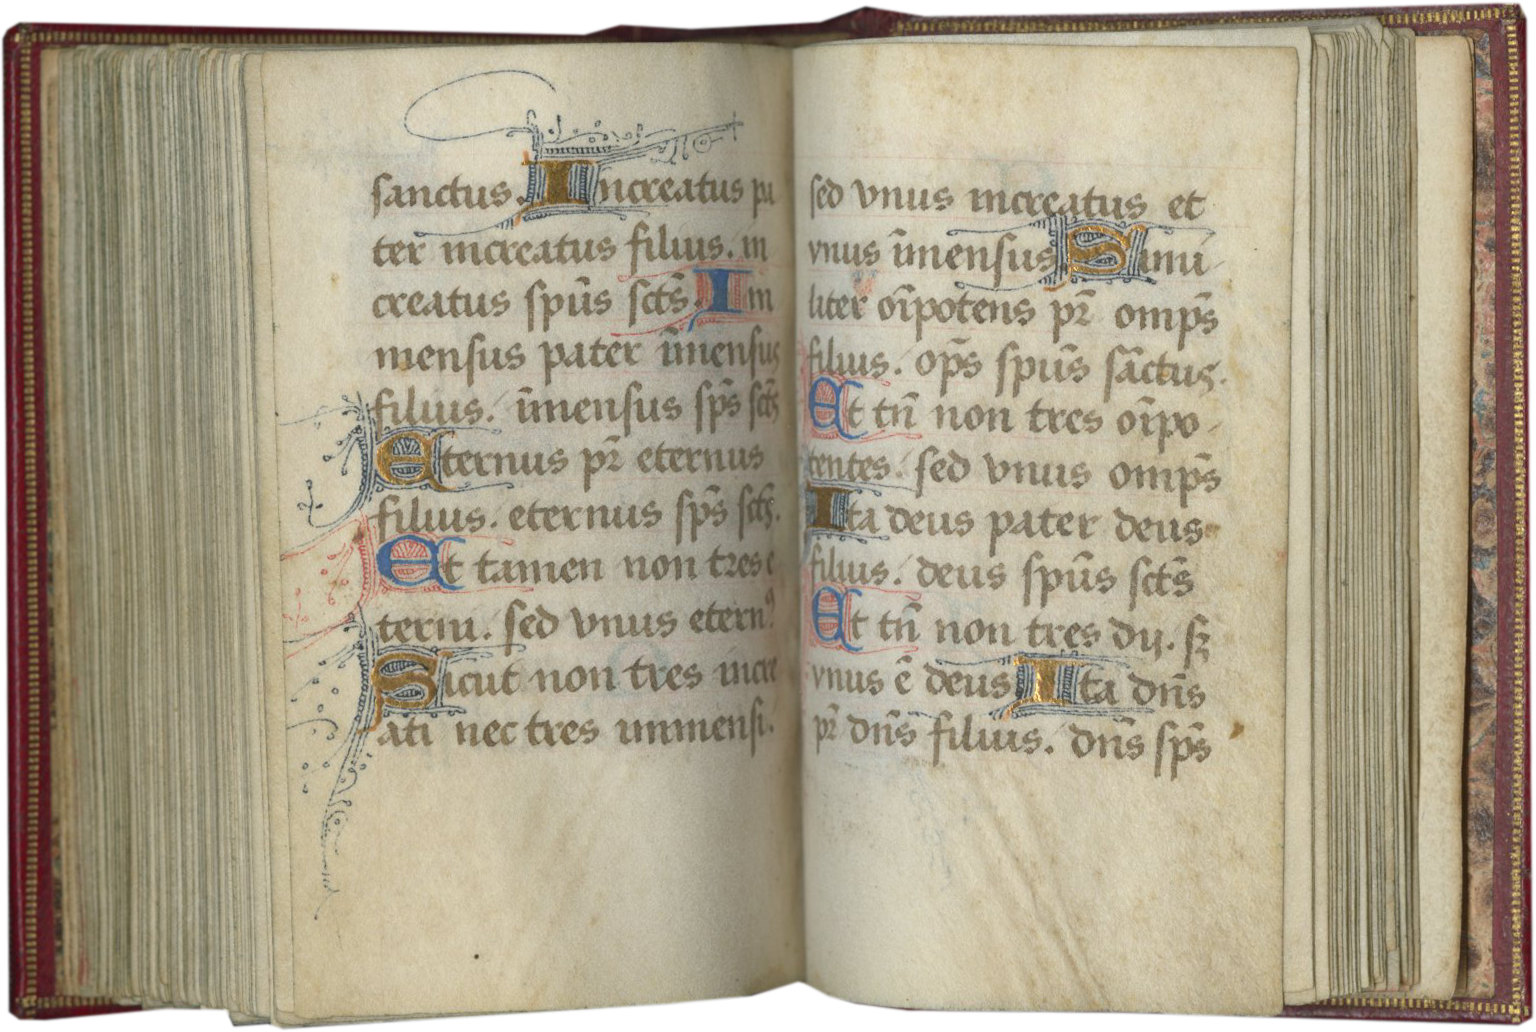 sanctus. Increatus pa
ter increatus filius. in
creatus spūs sct̄s. Im
mensus pater īmensus
filius. īmensus sp̄s sct̄s
Eternus pr̄ eternus
filius. eternus sp̄s sct̄s.
Et tamen non tres e
terni. sed vnus eternꝰ.
Sicut non tres incre
ati nec tres immensi.
sed vnus increatus et
vnus īmensus Simi
liter oīpotens pr̄ omp̄s
filius. op̄s spūs sāctus.
Et tn̄ non tres oīpo
tentes. sed vnus omp̄s
Ita deus pater deus
filius. deus spūs sct̄s
Et tn̄ non tres dij. sꝫ
vnus ē deus Ita dn̄s
pr̄ dn̄s filius. dn̄s sp̄s